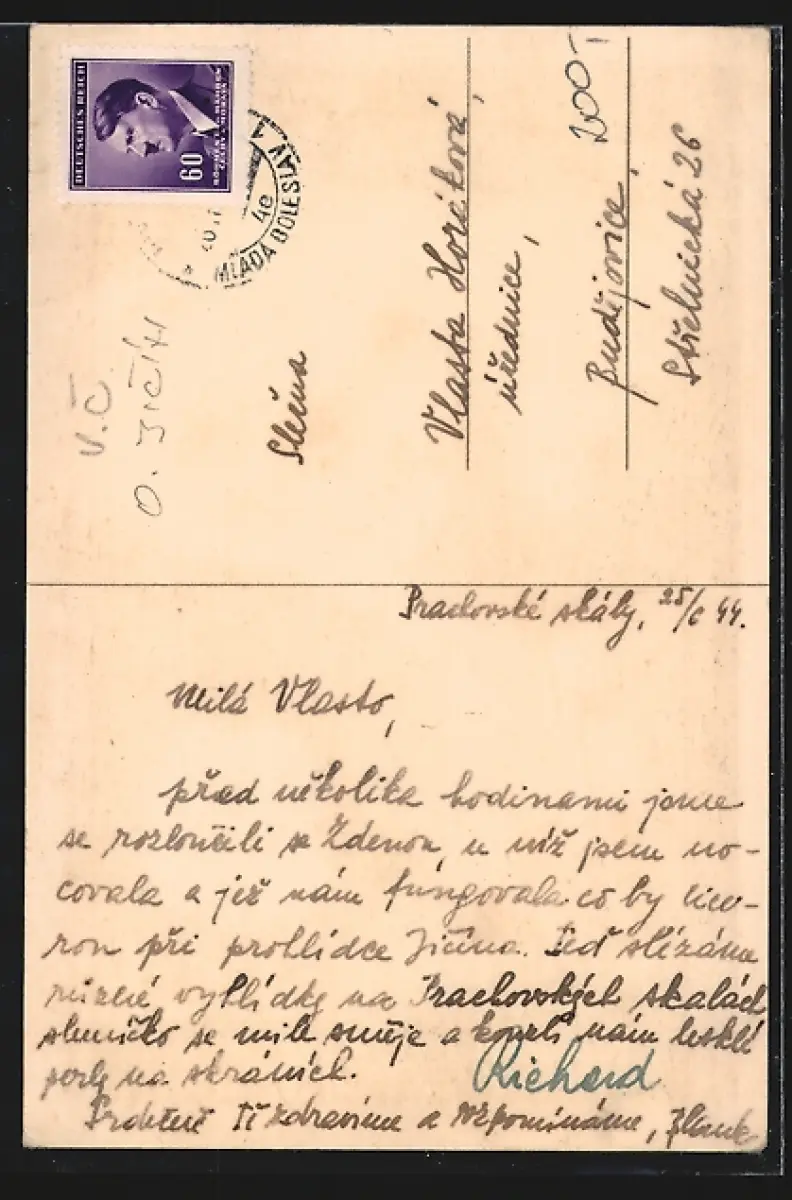 DEUTSCHES REICH
60
BÖHMEN U. MÄHREN
ČECHY • MORAVA
MLADÁ BOLESLAV 1
4e
V.Č.
O. JIČÍN
Slečna
Vlasta Horáková,
úřednice,
Budějovice,
Střelnická 26
200
Prachovské skály, 25/6 44.
Milá Vlasto,
před několika hodinami jsme
se rozloučili se Zdenou, u níž jsem no-
covala a jež nám fungovala co by cice-
ron při prohlídce Jičína. Teď slézáme
různé vyhlídky na Prachovských skalách
sluníčko se mile směje a kouzlí nám lesklé
perly na skráních.
Richard
Srdečně Tě zdravíme a vzpomínáme,